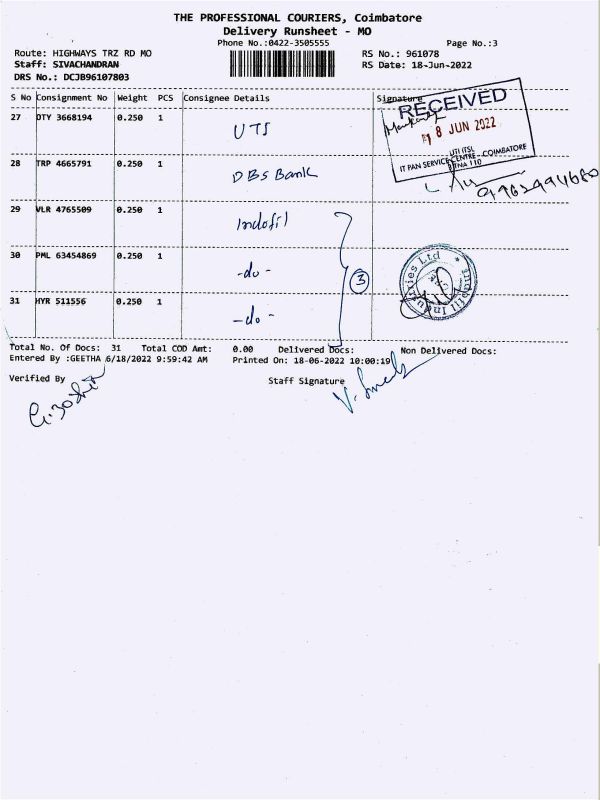 THE PROFESSIONAL COURIERS, Coimbatore
Delivery Runsheet - MO
Phone No.:0422-3505555 Page No.:3
Route: HIGHWAYS TRZ RD MO RS No.: 961078
Staff: SIVACHANDRAN RS Date: 18-Jun-2022
DRS No.: DCJB96107803
S No Consignment No Weight PCS Consignee Details Signature
27 OTY 3668194 0.250 1 UTS
RECEIVED
18 JUN 2022
UTI ITSL
IT PAN SERVICE CENTRE - COIMBATORE
28 TRP 4665791 0.250 1 DBS Bank
29 VLR 4765509 0.250 1 Indofil
30 PML 63454869 0.250 1 -do-
3
31 HYR 511556 0.250 1 -do-
Total No. Of Docs: 31 Total COD Amt: 0.00 Delivered Docs: Non Delivered Docs:
Entered By :GEETHA 6/18/2022 9:59:42 AM Printed On: 18-06-2022 10:00:19
Verified By Staff Signature